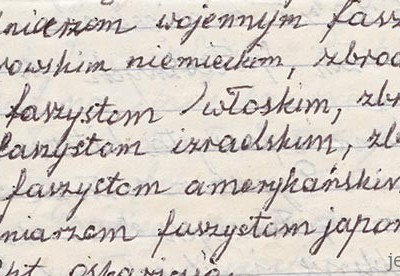 dniarzom wojennym fasz
rowskim niemieckim, zbrod
faszystom włoskim, zbr
faszystom izraelskim, zb
faszystom amerykańskim
niarzom faszystom japoń
oskarżają
je